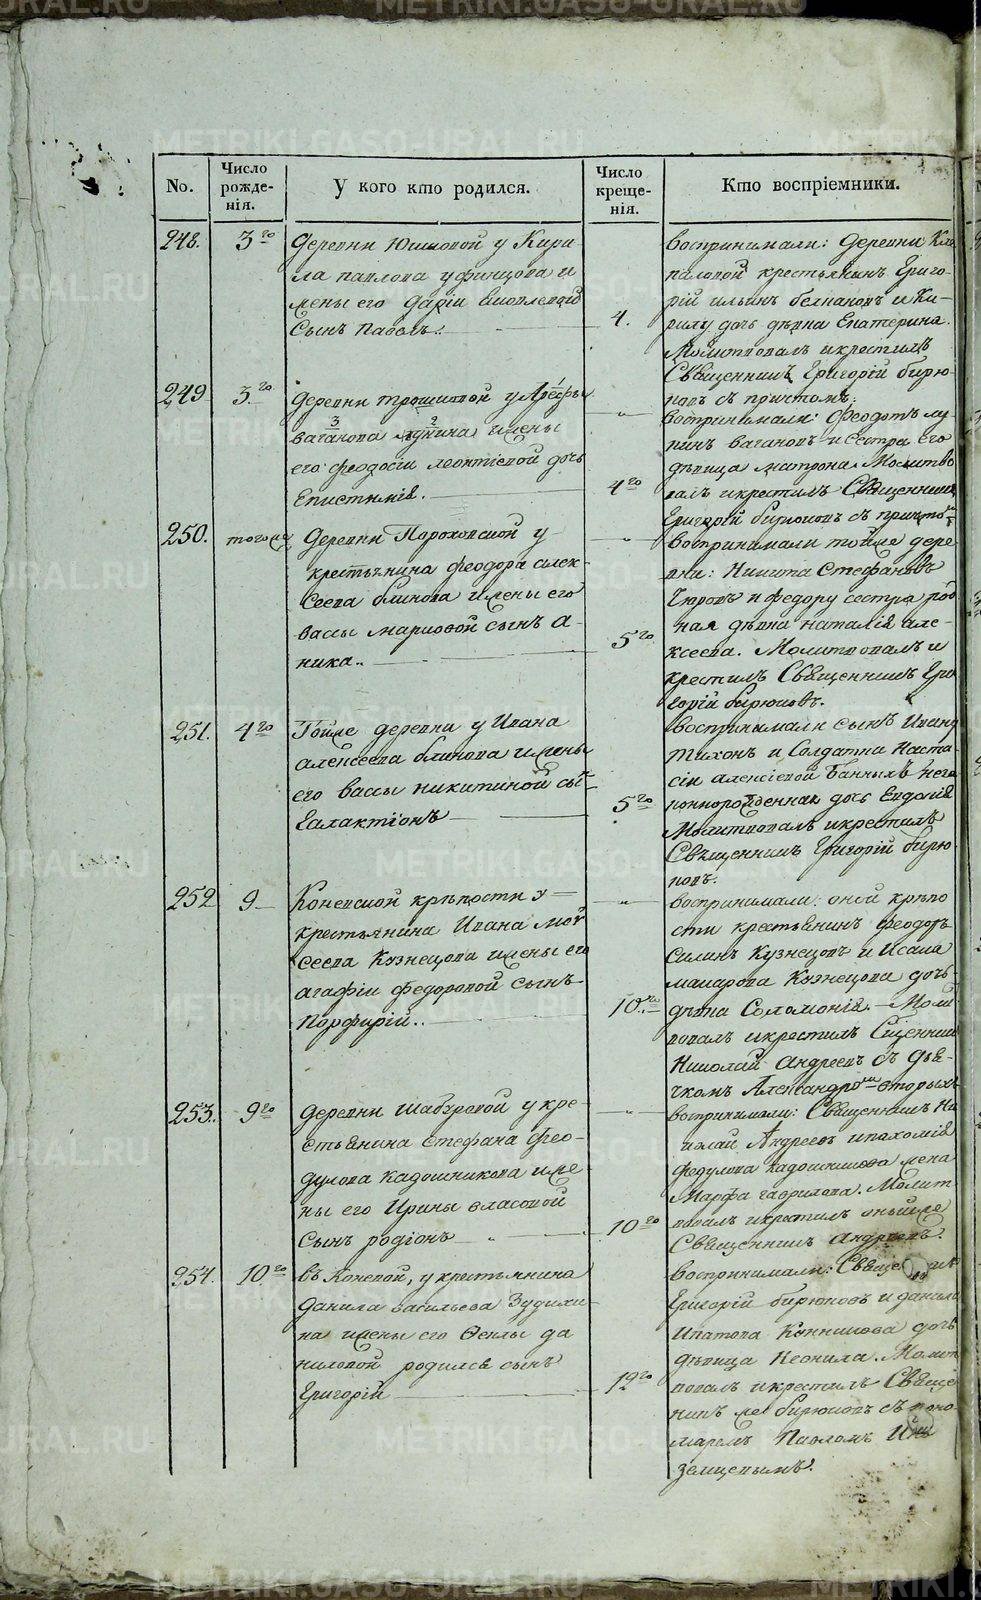 No.
Число рожде-
нія.
У кого кто родился.
Число креще-
нія.
Кто воспріемники.
248.
3го
Деревни Юшковой у Кири-
ла павлова уфинцова и
жены его Дарiи
Сынъ Павелъ.
4.
воспринимали: Деревни
паловой крестьянинъ Григо-
рiй ильинъ белкановъ и Ки-
рилу дочь дѣвка Екатерина.
Молитвовалъ и крестилъ
Священникъ Григорiй бирю-
ковъ съ причтомъ.
249
3го
Деревни трошковой у
ваганова лукина и жены
его феодосiи леонтiевой дочь
Епистимiя.
4го
воспринимали: Феодотъ лу-
кинъ вагановъ и Сестра его
дѣвица матрона. Молитво
валъ и крестилъ Священникъ
Григорiй бирюковъ съ причтомъ
250.
тогоже
Деревни Пороховской у
крестьянина феодора алек-
сеева блинова и жены его
вассы марковой сынъ а-
ника.
5го
воспринимали тойже дере
вни: Никита Стефановъ
Чюровъ и федору сестра род
ная дѣвка наталiя але-
ксеева. Молитвовалъ и
крестилъ Священникъ Гри
горiй бирюковъ.
251.
4го
Тойже деревни у Ивана
алексеева блинова и жены
его вассы никитиной сы
Галактiонъ
5го
воспринимали сынъ Ивана
Тихонъ и Солдатка Наста-
сiи алексiевой банныхъ
дочь Евдокiя
Молитвовалъ и крестилъ
Священникъ Григорiй бирю-
ковъ.
252
9
Коневской крѣпости у
крестьянина Ивана мои
сеева Кузнецова и жены его
агафiи федоровой сынъ
Порфирiй..
10го
воспринимали: оной крѣпо
сти крестьянинъ феодоръ
Силинъ Кузнецовъ и Исака
макарова Кузнецова дочь
дѣвка Соломонiя. Моли
вовалъ и крестилъ Сщенник
Николай Андреевъ съ дья-
чкомъ Александромъ вторыхъ
253.
9го
Деревни шабуровой у кре-
стьянина стефана фео-
дулова кадошникова и же
ны его Ирины власовой
Сынъ родiонъ
10го
воспринимали: Священникъ Ни
колай Андреевъ и пахомiя
Федулова кадошникова жена
Марфа гаврилова. Молит
вовалъ и крестилъ онъ же
Священникъ андреевъ.
254.
10го
въ Коневой, у крестьянина
Данила васильева Зудихи-
на и жены его Феклы да
ниловой родился сынъ
Григорiй
12го
воспринимали:
Григорiй бирюковъ и данила
Ипатова Коншкова дочь
дѣвица Неонила. Молит
вовалъ и крестилъ Священ
никъ же бирюковъ съ поно-
маремъ Павломъ Ино
земцевымъ.